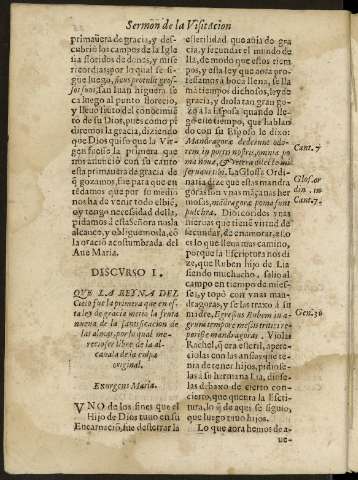 Sermon de la Visitacion
primauera de gracia, y des-
cubriò los campos de la Igle
sia floridos de dones, y mise
ricordias; por lo qual se si-
gue luego, ficus protulit gros-
sos suos, san Iuan higuera se
ca luego al punto florecio,
y lleuò fruto del conocimiẽ
to de su Dios, pues como po
diremos la gracia, diziendo
que Dios quiso que la Vir
gen fuesse la primera que
nos anunciò con su canto
esta primauera de gracia de
q̃ gozamos, fue para que en
tédamos que por su medio
nos ha de venir todo el biẽ,
oy tengo necessidad della,
pidamos à esta Señora nos la
alcance, y obliguemosla, cõ
la oració acostumbrada del
Aue Maria.
DISCVRSO I.
QVE LA REYNA DEL
Cielo fue la primera que en es-
ta ley de gracia metio la fruta
nueua de la santificacion de
las almas, por lo qual me-
recio ser libre de la al-
cauala de la culpa
original.
Exurgens Maria.
VNO de los fines que el
Hijo de Dios tuuo en su
Encarnació, fue desterrar la
esterilidad que auia de gra
cia, y fecundar el mundo de
lla, de modo que estos tiem
pos, y esta ley que aora pro
fessamos a boca llena, se lla
ma tiempos dichosos, ley de
gracia, y dio la tan gran go-
zo a la Esposa quando lle-
gò este tiempo, que hablan
do con su Esposo le dixo:
Mandragoræ dederunt odo-
rem in portis nostris, omnia po
ma noua, & vetera dilecte mi
seruaui tibi. La Glossa Ordi-
naria dize que estas mandra
goras son vnas mãçanas her
mosas, mãdragoræ poma sunt
pulchra. Dioscorides vnas
hieruas que tiene virtud de
fecundar, de enamorar, assi
es lo que llena mas camino,
porque la Escriptura nos di
ze, que Ruben hijo de Lia
siendo muchacho, salio al
campo en tiempo de mies-
ses, y topò con vnas man-
dragoras, y se las traxo à su
madre, Egressus Ruben in a-
grum tempore messis tritici re-
perit mandragoras. Violas
Rachel, q̃ era esteril, apere-
ciolas con las ansias que te-
nia de tener hijos, pidiose-
las à su hermana Lia, diose-
las debaxo de cierto con-
cierto, que quenta la Escri-
tura, lo q̃ de aqui se siguio,
que luego tuuo hijos.
Lo que aora hemos de a-
ue-
Cant. 7
Glos. or
din. in
Cant. 7.
Gen. 30